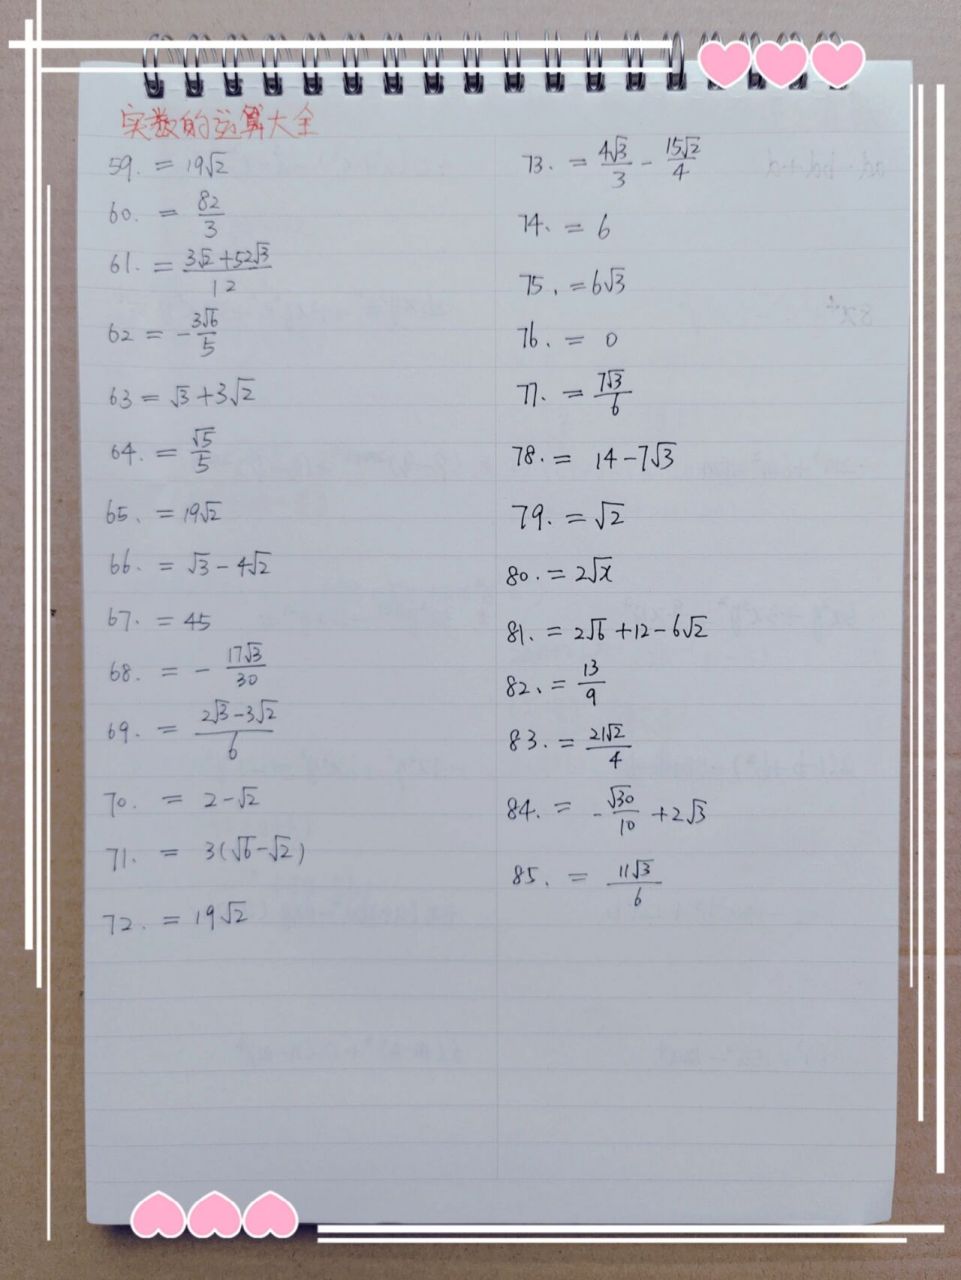 实数的运算大全
59. = 19√2
60. = 82/3
61. = (3√2+52√3)/12
62 = -3√6/5
63 = √3+3√2
64. = √5/5
65. = 19√2
66. = √3-4√2
67. = 45
68. = -17√3/30
69. = (2√3-3√2)/6
70. = 2-√2
71. = 3(√6-√2)
72. = 19√2
73. = 4√3/3 - 15√2/4
74. = 6
75. = 6√3
76. = 0
77. = 7√3/6
78. = 14-7√3
79. = √2
80. = 2√x
81. = 2√6+12-6√2
82. = 13/9
83. = 21√2/4
84. = -√30/10+2√3
85. = 11√3/6